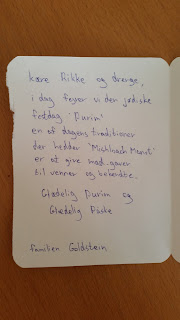 kære Rikke og drenge,
i dag fejrer vi den jødiske
festdag 'Purim'
en af dagens traditioner
der hedder 'Mishloach Manot'
er at give mad-gaver
til venner og bekendte.
Glædelig Purim og
Glædelig Påske
familien Goldstein